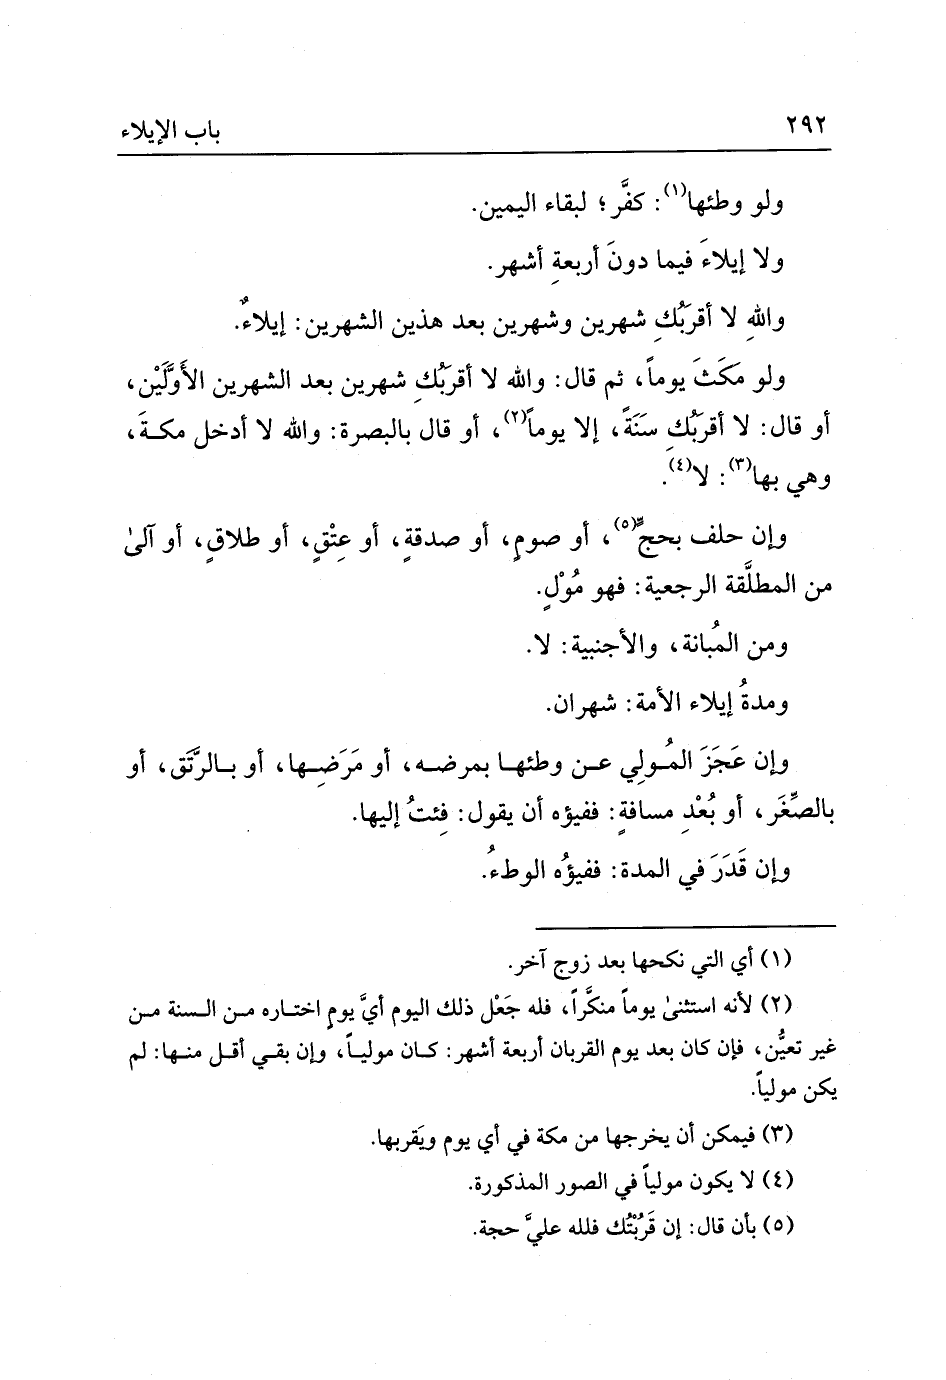 ٢٩٢ باب الإيلاء
ولو وطئها(١): كفَّر؛ لبقاء اليمين.
ولا إيلاءَ فيما دونَ أربعةِ أشهر.
واللهِ لا أقربُكِ شهرين وشهرين بعد هذين الشهرين: إيلاءٌ.
ولو مَكَثَ يوماً، ثم قال: والله لا أقربُكِ شهرين بعد الشهرين الأَوَّلَيْن،
أو قال: لا أقربُكِ سَنَةً، إلا يوماً(٢)، أو قال بالبصرة: والله لا أدخل مكـةَ،
وهي بها(٣): لا(٤).
وإن حلف بحجٍّ(٥)، أو صومٍ، أو صدقةٍ، أو عِتْقٍ، أو طلاقٍ، أو آلىٰ
من المطلَّقة الرجعية: فهو مُوْلٍ.
ومن المُبانة، والأجنبية: لا.
ومدةُ إيلاء الأمة: شهران.
وإن عَجَزَ المُـولِي عـن وطئهـا بمرضـه، أو مَرَضِـها، أو بـالرَّتَق، أو
بالصِّغَر، أو بُعْدِ مسافةٍ: ففيؤه أن يقول: فِئتُ إليها.
وإن قَدَرَ في المدة: ففيؤُه الوطءُ.
(١) أي التي نكحها بعد زوج آخر.
(٢) لأنه استثنىٰ يوماً منكَّراً، فله جَعْل ذلك اليوم أيَّ يومٍ اختـاره مـن الـسنة مـن
غير تعيُّن، فإن كان بعد يوم القربان أربعة أشهر: كـان موليـاً، وإن بقـي أقـل منـها: لم
يكن مولياً.
(٣) فيمكن أن يخرجها من مكة في أي يوم ويَقربها.
(٤) لا يكون مولياً في الصور المذكورة.
(٥) بأن قال: إن قَرُبْتُك فلله عليَّ حجة.